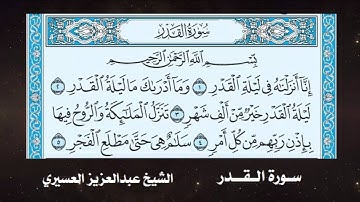 سُورَةُ الْقَدْرِ
بِسْمِ اللَّهِ الرَّحْمَٰنِ الرَّحِيمِ
إِنَّا أَنزَلْنَاهُ فِي لَيْلَةِ الْقَدْرِ ١ وَمَا أَدْرَاكَ مَا لَيْلَةُ الْقَدْرِ ٢
لَيْلَةُ الْقَدْرِ خَيْرٌ مِّنْ أَلْفِ شَهْرٍ ٣ تَنَزَّلُ الْمَلَائِكَةُ وَالرُّوحُ فِيهَا
بِإِذْنِ رَبِّهِم مِّن كُلِّ أَمْرٍ ٤ سَلَامٌ هِيَ حَتَّىٰ مَطْلَعِ الْفَجْرِ ٥
سورة القدر
الشيخ عبدالعزيز العسيري